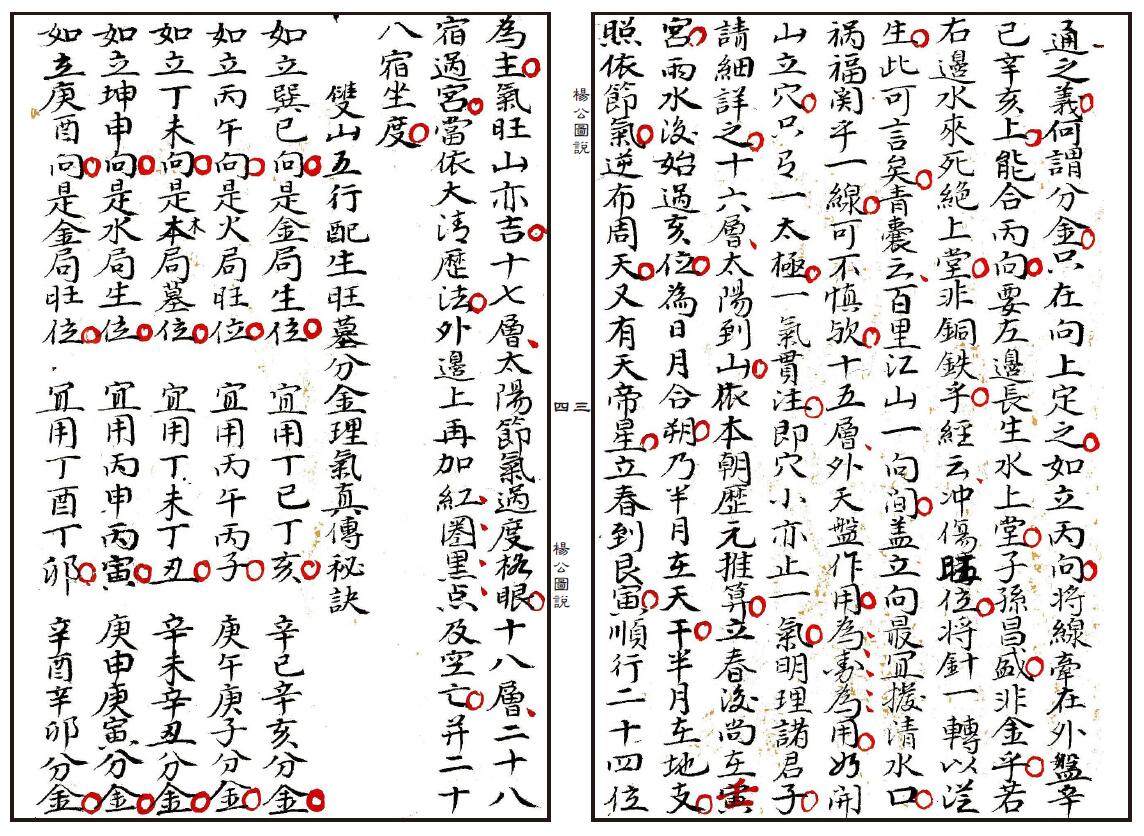 通之義何謂分金只在向上定之如立丙向將線牽在外盤辛
已辛亥上能合丙向要左邊長生水上堂子孫昌盛非金乎若
右邊水來死絕上堂非銅鉄乎經云冲傷 位将針一轉以沒
生此可言矣青囊云百里江山一向間盖立向最宜撥清水口
祸福関乎一線可不慎歟十五層外天盤作用為寿為用妙開
山立穴只弓一太極一氣貫注即穴小亦止一氣明理諸君子
請細詳之十六層太陽到山依本朝歷元推算立春後尚在
宮雨水後始過亥位為日月合朔乃半月在天干半月在地支
照依節氣逆布周天又有天帝星立春到艮寅順行二十四位
楊公圖説
三
四
楊公圖説
為主氣旺山亦吉十七層太陽節氣過度格眼十八層二十八
宿過宮當依大清歷法外邊上再加紅圈黑点及空亡并二十
八宿坐度
雙山五行配生旺墓分金理氣真傳秘訣
如立巽已向是金局生位 宜用丁已丁亥 辛已辛亥分金
如立丙午向是火局旺位 宜用丙午丙子 庚午庚子分金
如立丁未向是木局墓位 宜用丁未丁丑 辛未辛丑分金
如立坤申向是水局生位 宜用丙申丙寅 庚申庚寅分金
如立庚酉向是金局旺位 宜用丁酉丁卯 辛酉辛卯分金